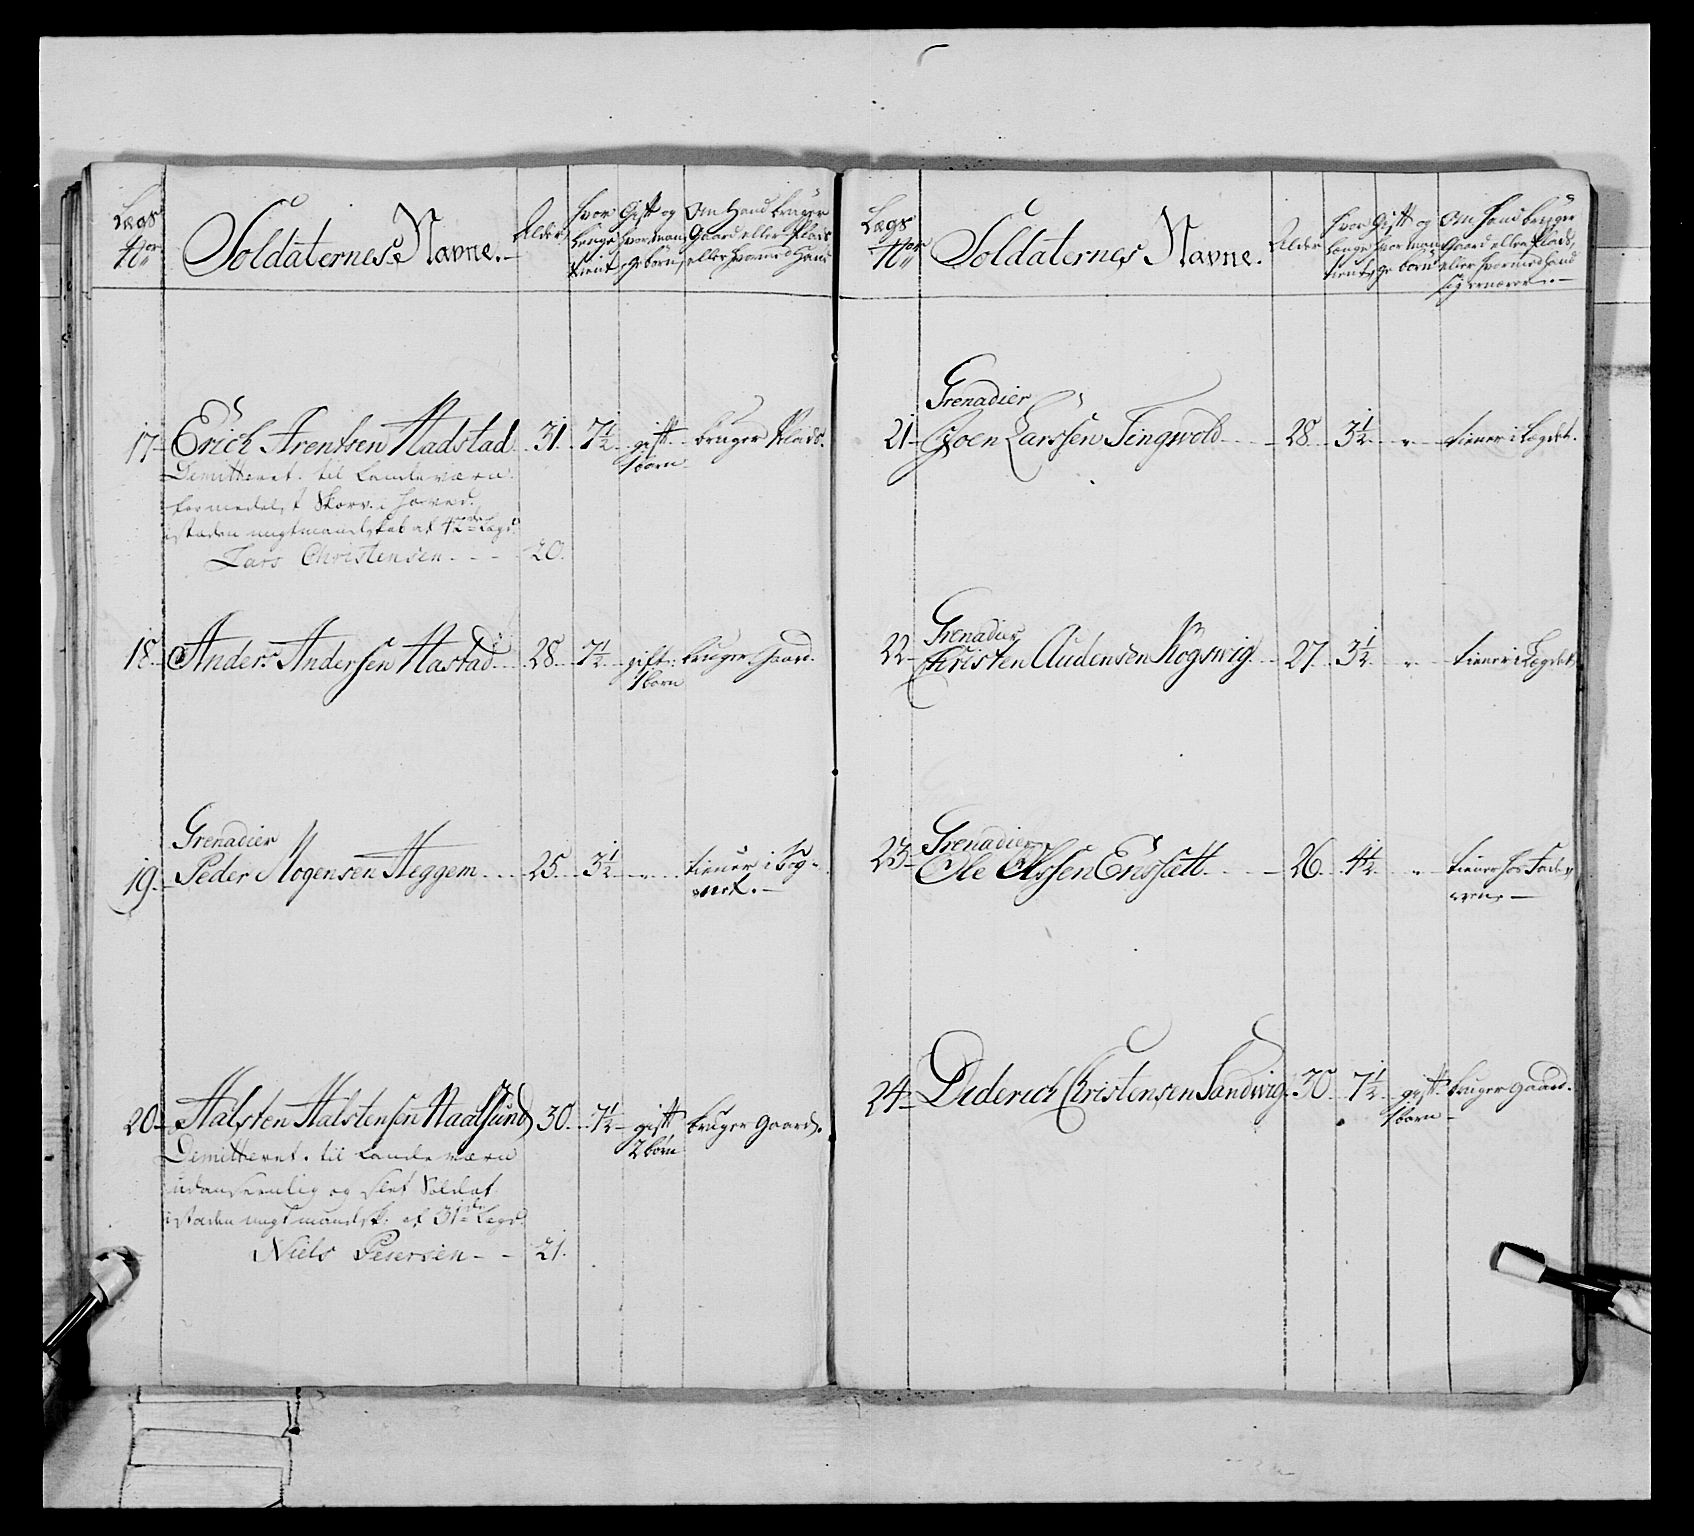 Lægs
No
Soldaternes Navne.
Alder
hvor
længe
tient
Gift og
hvor man-
ge börn
Om Hand bruger
Gaard eller Plads
eller hvormed Hand
17 Erich Arentsen Nadstad 31. 7½ gift bruger Plads.
1 barn
Dimitteret til Landeværn
formedelst Skorv i Hoved.
istæden ungtmandskab af 42de Lægd
Lars Christensen - - 20.
18 Anders Andersen Nastad 28. 7½ gift bruger Gaard.
1 barn
Grenadier
19. Peder Mogensen Heggem 25. 3½ " tiener i Sog-
net.
20 Halsten Halstensen Naalsund 30. 7½ gift bruger Gaard.
2 börn
Dimitteret til Landeværn
uanseenlig og slet Soldat
istæden ungtmandsk. af 31de Lægd
Niels Pedersen - - 21.
Lægs
No
Soldaternes Navne.
Alder
hvor
længe
tient
Gift og
hvor man-
ge börn
Om Hand bruger
Gaard eller Plads,
eller hvormed Hand
sig ernærer
Grenadier
21 Joen Larssen Tingvold 28. 3½ " tiener i Lægdet.
Grenadier
22 Christen Audensen Kögswig 27. 3½ " tiener i Lægdet
Grenadier
23 Ole Olssen Eidssætt 26. 4½ " tiener hos Fade-
ren
24 Diderich Christensen Sandwig 30. 7½ gift bruger Gaard.
1 barn